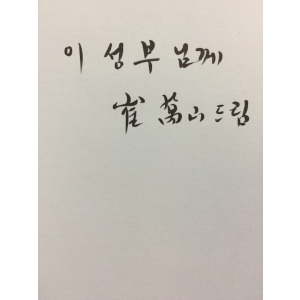 이 성 부 님께
崔 萬山 드림